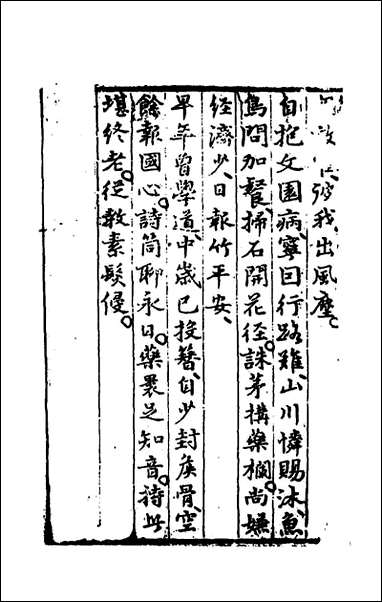 我出風塵。
自抱文園病、寧曰行路難、山川憐賜沐、魚
鳥問加餐、掃石開花徑。誅茅搆藥欄。尚嫌
經濟少、日報竹平安、
早年曾學道、中歲已投簪、自少封矦骨、空
餘報國心。詩筒聊永日。藥裹足知音。持此
堪終老。從教素髮侵。